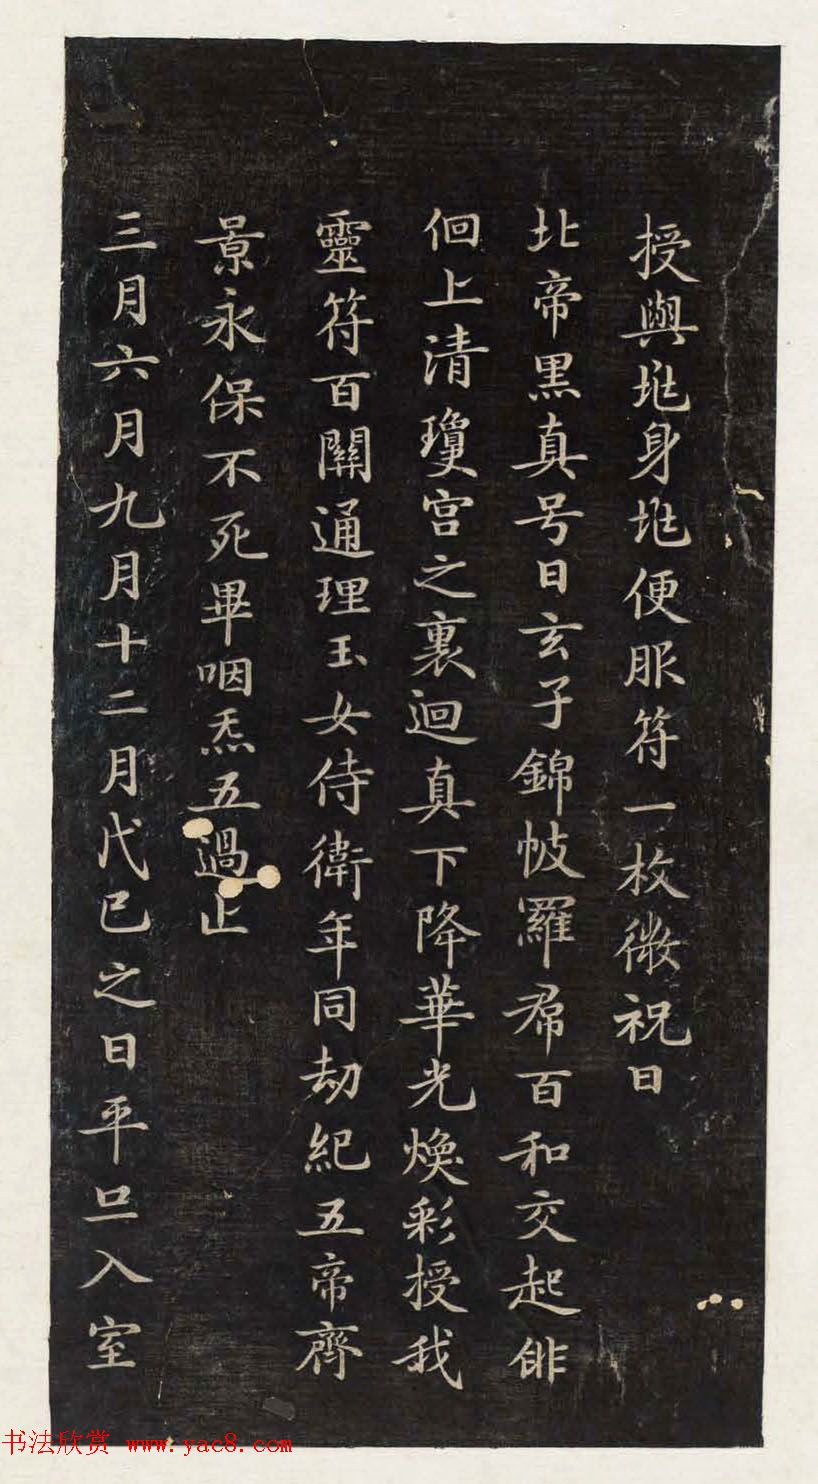 授與兆身兆便服符一枚微祝曰
北帝黑真号曰玄子錦帔羅帬百和交起俳
佪上清瓊宮之裏迴真下降華光煥彩授我
靈符百關通理玉女侍衛年同劫紀五帝齊
景永保不死畢咽炁五過止
三月六月九月十二月戊巳之日平旦入室
书法欣赏 www.yac8.com